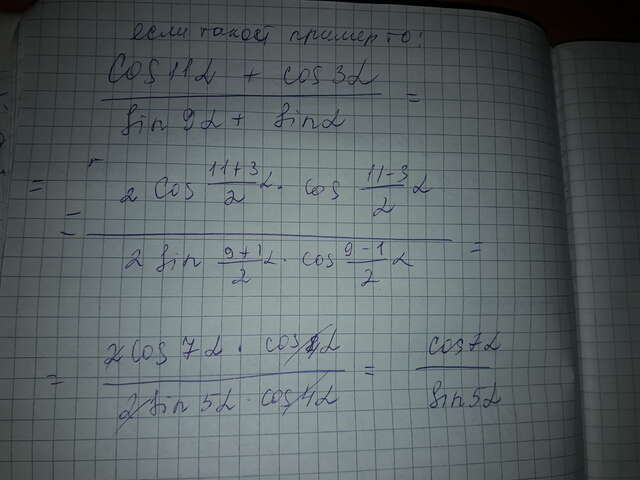 если такой пример то:
cos 11α + cos 3α
sin 9α + sin α
=
= 2 cos 11+3/2 α · cos 11-3/2 α
2 sin 9+1/2 α · cos 9-1/2 α
=
= 2 cos 7α · cos 4α
2 sin 5α · cos 4α
= cos 7α
sin 5α